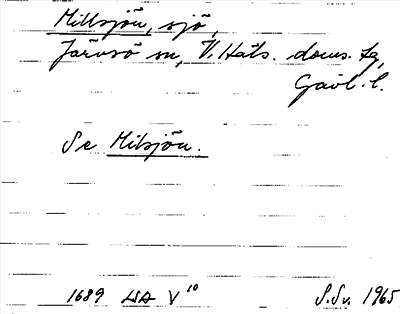 Millsjön, sjö,
Järvsö sn, V. Häls. doms. tg,
Gävl. l.
Se Milsjön.
1689 LSA V 10 S.Sv. 1965